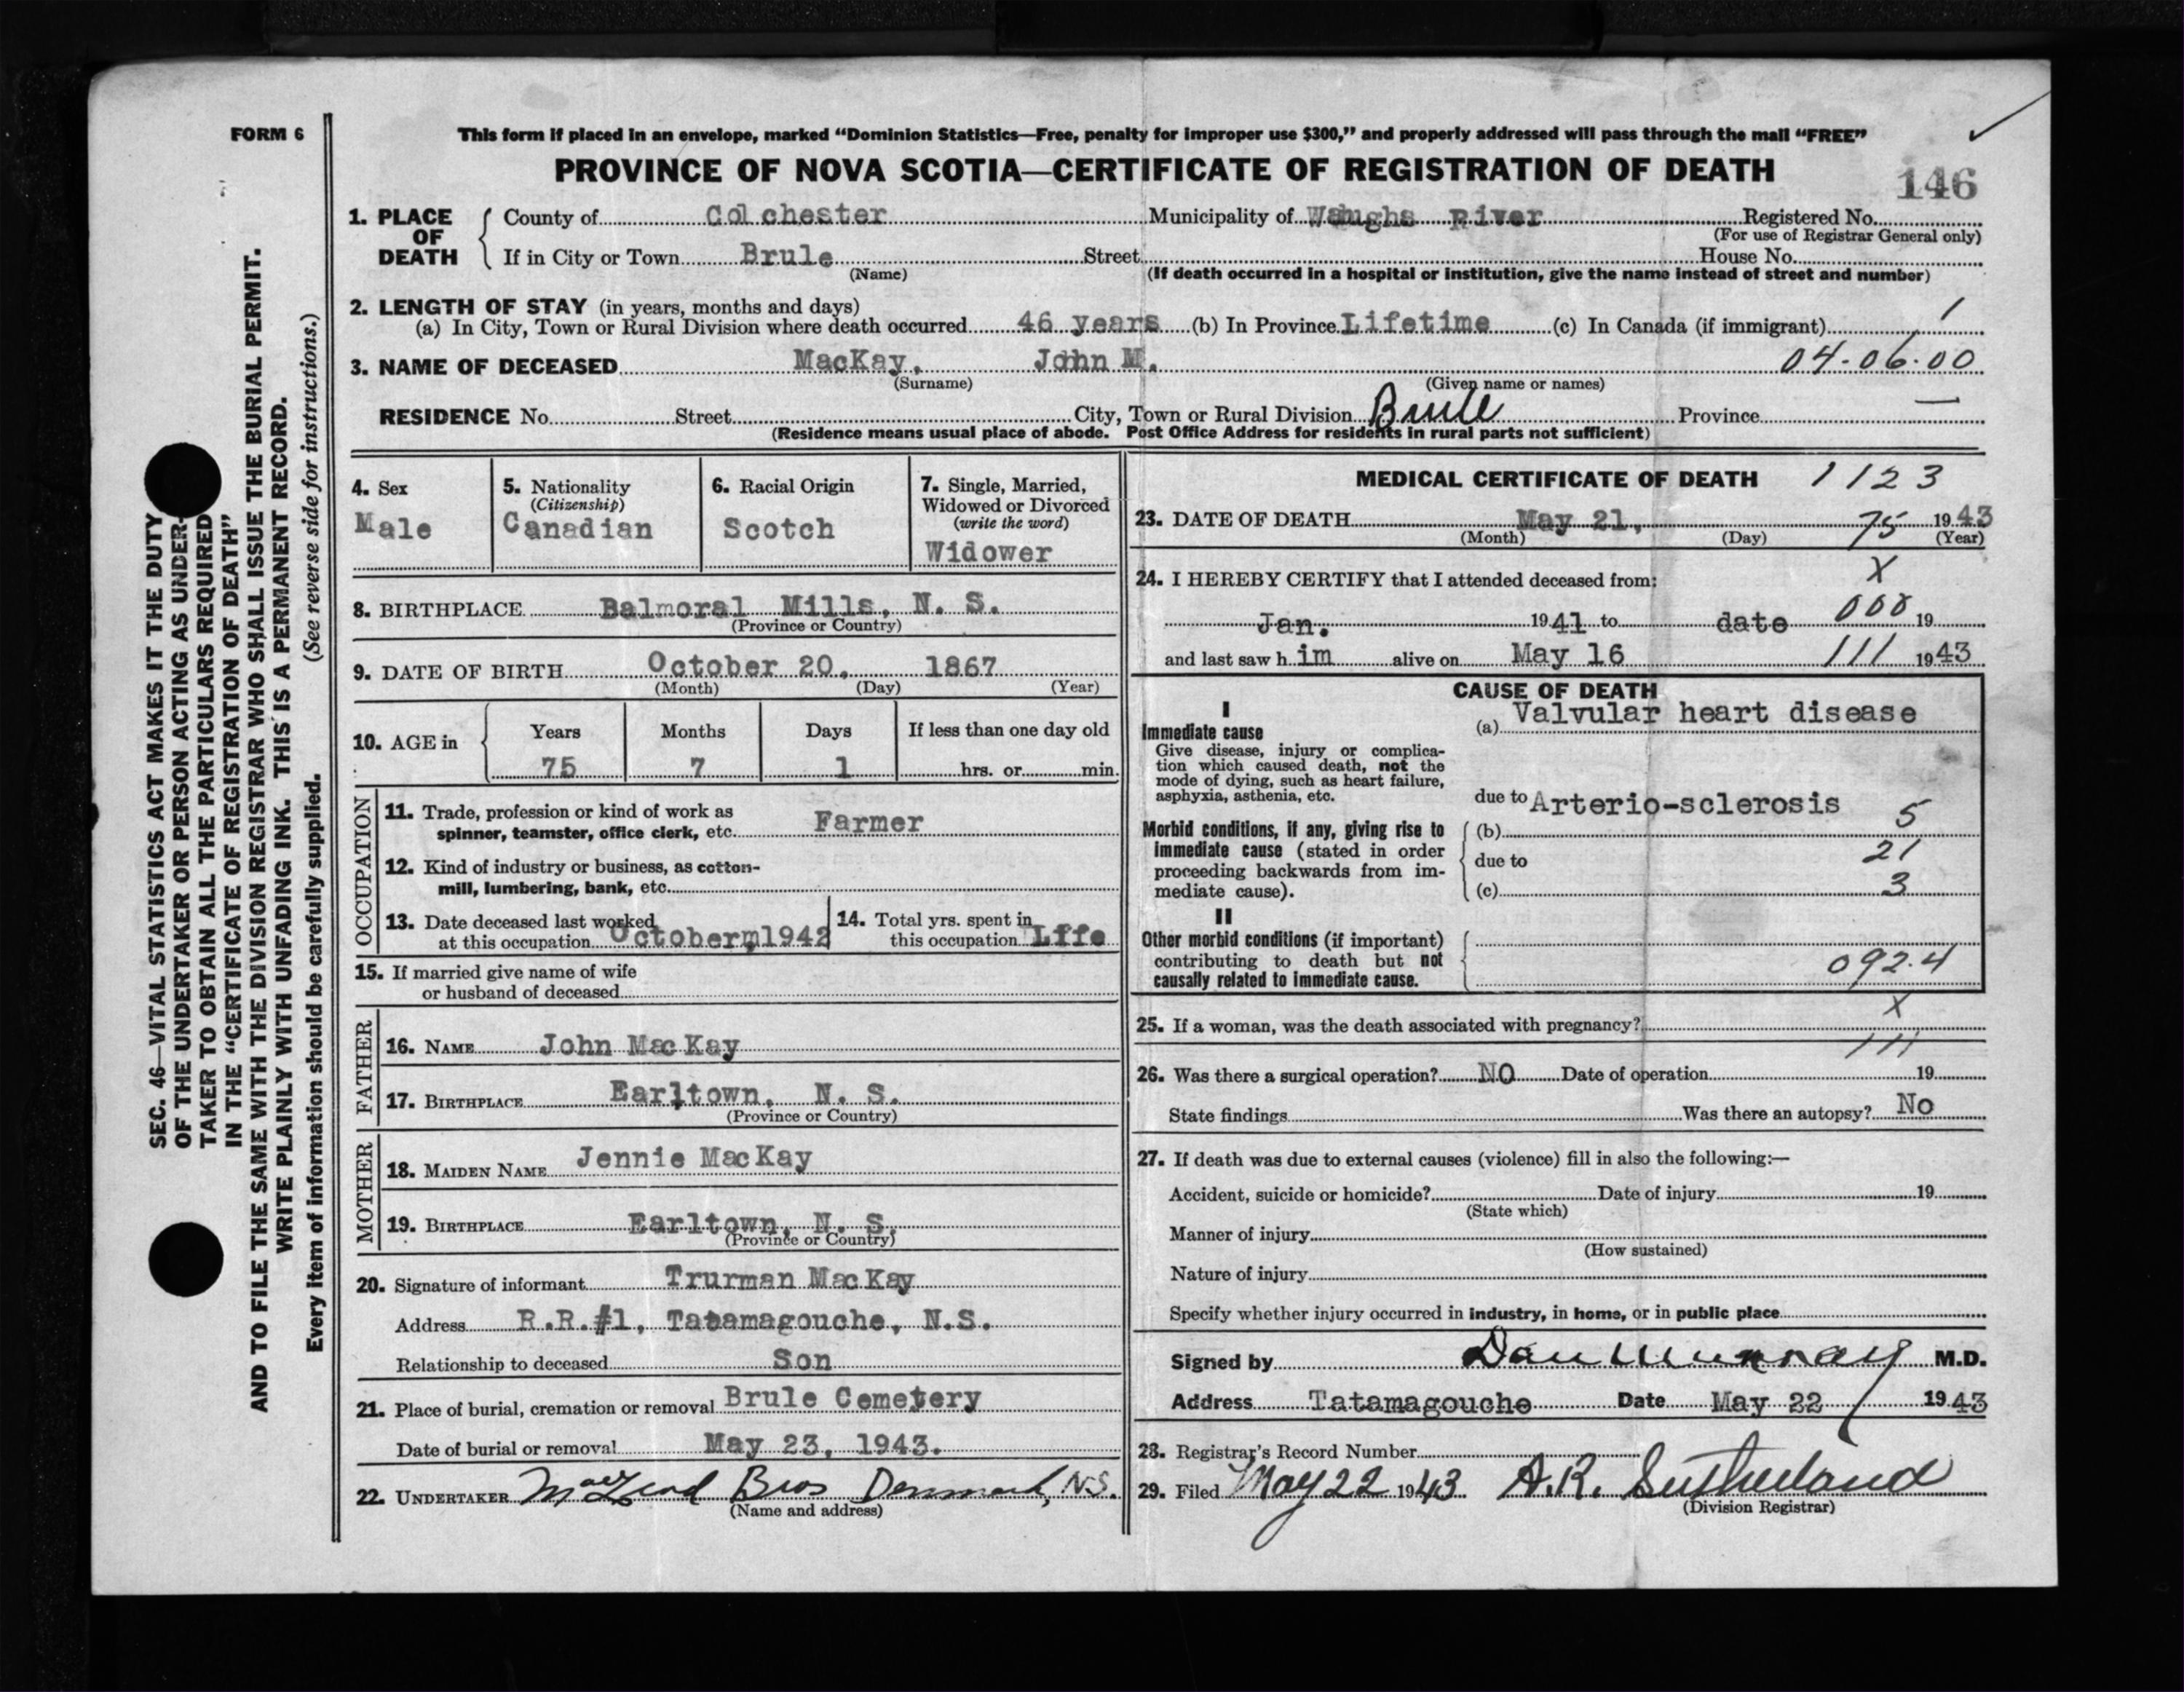 FORM 6
This form if placed in an envelope, marked “Dominion Statistics—Free, penalty for improper use $300,” and properly addressed will pass through the mail “FREE”
PROVINCE OF NOVA SCOTIA—CERTIFICATE OF REGISTRATION OF DEATH
146
1. PLACE OF DEATH
County of Colchester Municipality of Waughs River Registered No.
(For use of Registrar General only)
If in City or Town Brule Street House No.
(Name) (If death occurred in a hospital or institution, give the name instead of street and number)
2. LENGTH OF STAY (in years, months and days)
(a) In City, Town or Rural Division where death occurred 46 years (b) In Province Lifetime (c) In Canada (if immigrant) 1
3. NAME OF DECEASED MacKay, John M. 04-06-00
(Surname) (Given name or names)
RESIDENCE No. Street City, Town or Rural Division Brule Province —
(Residence means usual place of abode. Post Office Address for residents in rural parts not sufficient)
4. Sex
Male
5. Nationality
(Citizenship)
Canadian
6. Racial Origin
Scotch
7. Single, Married,
Widowed or Divorced
(write the word)
Widower
8. BIRTHPLACE Balmoral Mills, N. S.
(Province or Country)
9. DATE OF BIRTH October 20, 1867
(Month) (Day) (Year)
10. AGE in
Years Months Days If less than one day old
75 7 1 hrs. or min.
OCCUPATION
11. Trade, profession or kind of work as
spinner, teamster, office clerk, etc. Farmer
12. Kind of industry or business, as cotton-
mill, lumbering, bank, etc.
13. Date deceased last worked
at this occupation Octoberm1942
14. Total yrs. spent in
this occupation Life
15. If married give name of wife
or husband of deceased
FATHER
16. NAME John MacKay
17. BIRTHPLACE Earltown, N. S.
(Province or Country)
MOTHER
18. MAIDEN NAME Jennie MacKay
19. BIRTHPLACE Earltown, N. S.
(Province or Country)
20. Signature of informant Trurman MacKay
Address R.R.#1, Tatamagouche, N.S.
Relationship to deceased Son
21. Place of burial, cremation or removal Brule Cemetery
Date of burial or removal May 23, 1943.
22. UNDERTAKER MacLeod Bros Denmark, N.S.
(Name and address)
MEDICAL CERTIFICATE OF DEATH 1123
23. DATE OF DEATH May 21, 75 1943
(Month) (Day) (Year)
24. I HEREBY CERTIFY that I attended deceased from: X
Jan. 1941 to date 000 19
and last saw him alive on May 16 111 1943
CAUSE OF DEATH
I
Immediate cause
Give disease, injury or complica-
tion which caused death, not the
mode of dying, such as heart failure,
asphyxia, asthenia, etc.
(a) Valvular heart disease
due to Arterio-sclerosis
Morbid conditions, if any, giving rise to
immediate cause (stated in order
proceeding backwards from im-
mediate cause).
(b) 5
due to 21
(c) 3
II
Other morbid conditions (if important)
contributing to death but not
causally related to immediate cause.
092.4
X
25. If a woman, was the death associated with pregnancy?
111
26. Was there a surgical operation? NO Date of operation 19
State findings Was there an autopsy? No
27. If death was due to external causes (violence) fill in also the following:—
Accident, suicide or homicide? Date of injury 19
(State which)
Manner of injury
(How sustained)
Nature of injury
Specify whether injury occurred in industry, in home, or in public place
Signed by Dan Murray M.D.
Address Tatamagouche Date May 22 1943
28. Registrar's Record Number
29. Filed May 22 1943 A.R. Sutherland
(Division Registrar)
SEC. 46—VITAL STATISTICS ACT MAKES IT THE DUTY
OF THE UNDERTAKER OR PERSON ACTING AS UNDER-
TAKER TO OBTAIN ALL THE PARTICULARS REQUIRED
IN THE “CERTIFICATE OF REGISTRATION OF DEATH”
AND TO FILE THE SAME WITH THE DIVISION REGISTRAR WHO SHALL ISSUE THE BURIAL PERMIT.
WRITE PLAINLY WITH UNFADING INK. THIS IS A PERMANENT RECORD.
Every item of information should be carefully supplied. (See reverse side for instructions.)